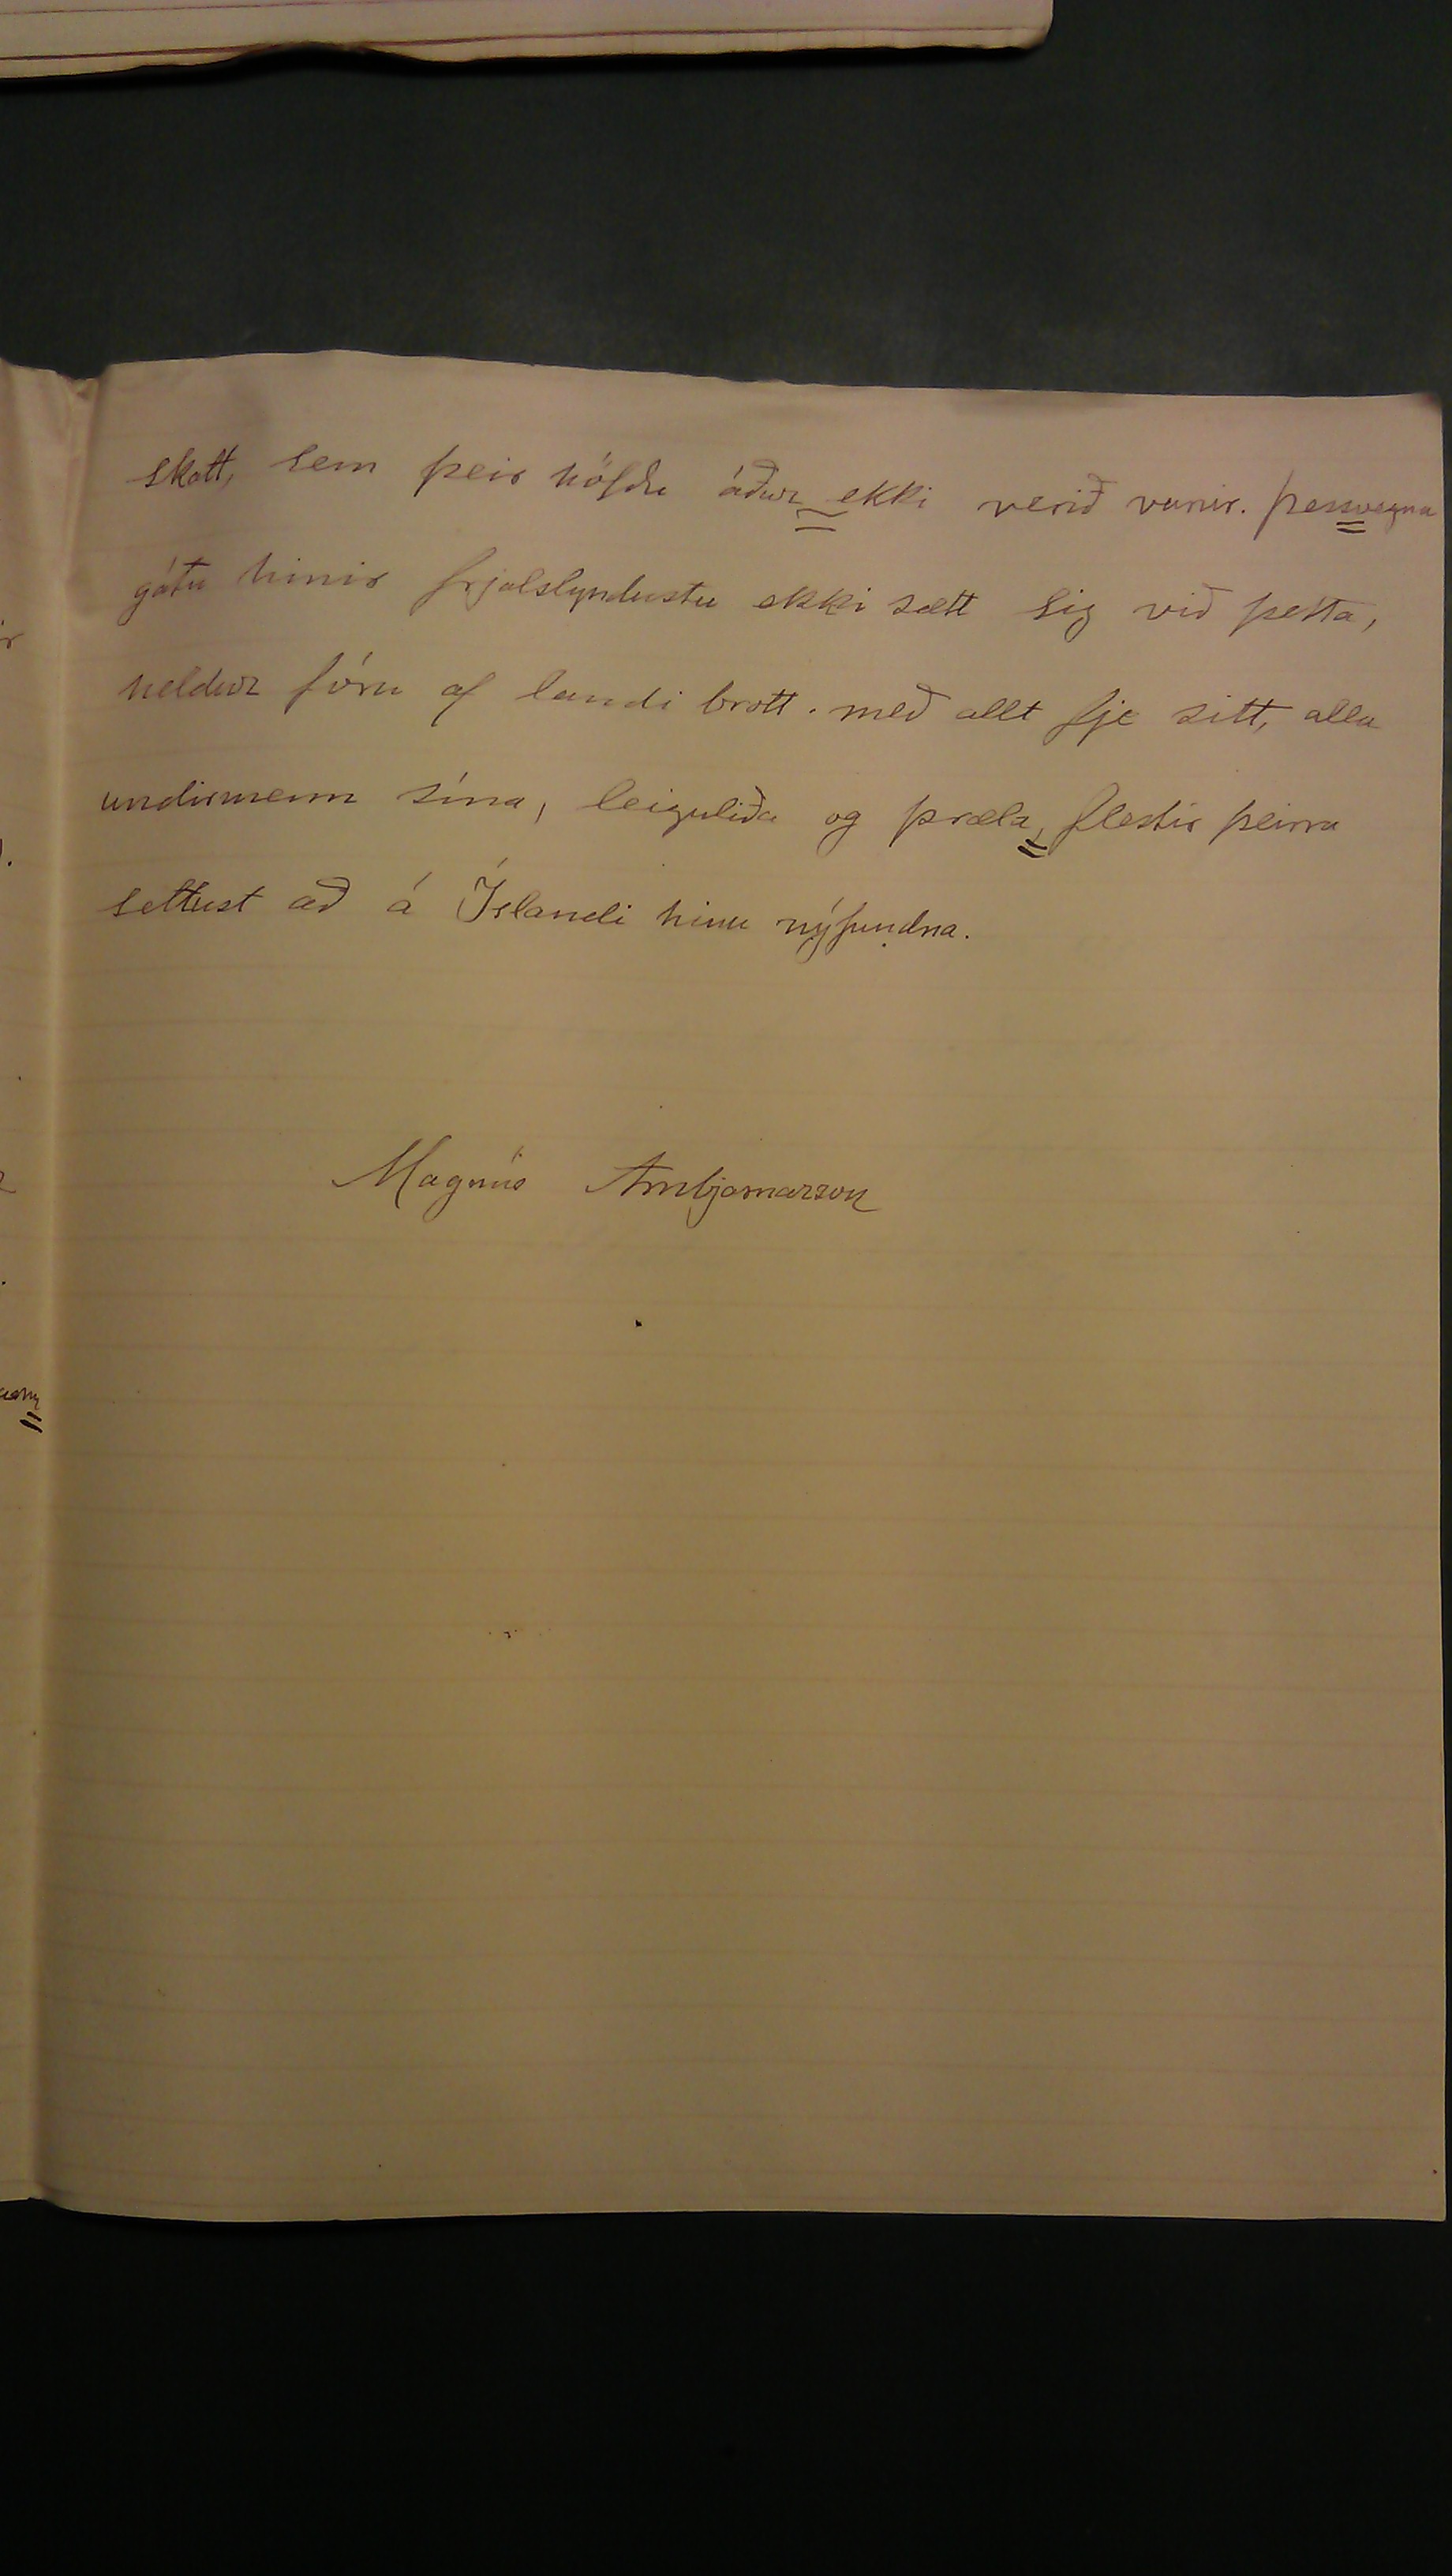 skatt, sem þeir höfðu áður ekki verið vanir. Þessvegna
gátu hinir frjálslyndustu ekki sætt sig við þetta,
heldur fóru af landi brott. með allt fje sitt, alla
undirmenn sína, leiguliða og þræla, flestir þeirra
settust að á Íslandi hinu nýfundna.
Magnús Arnbjarnarson